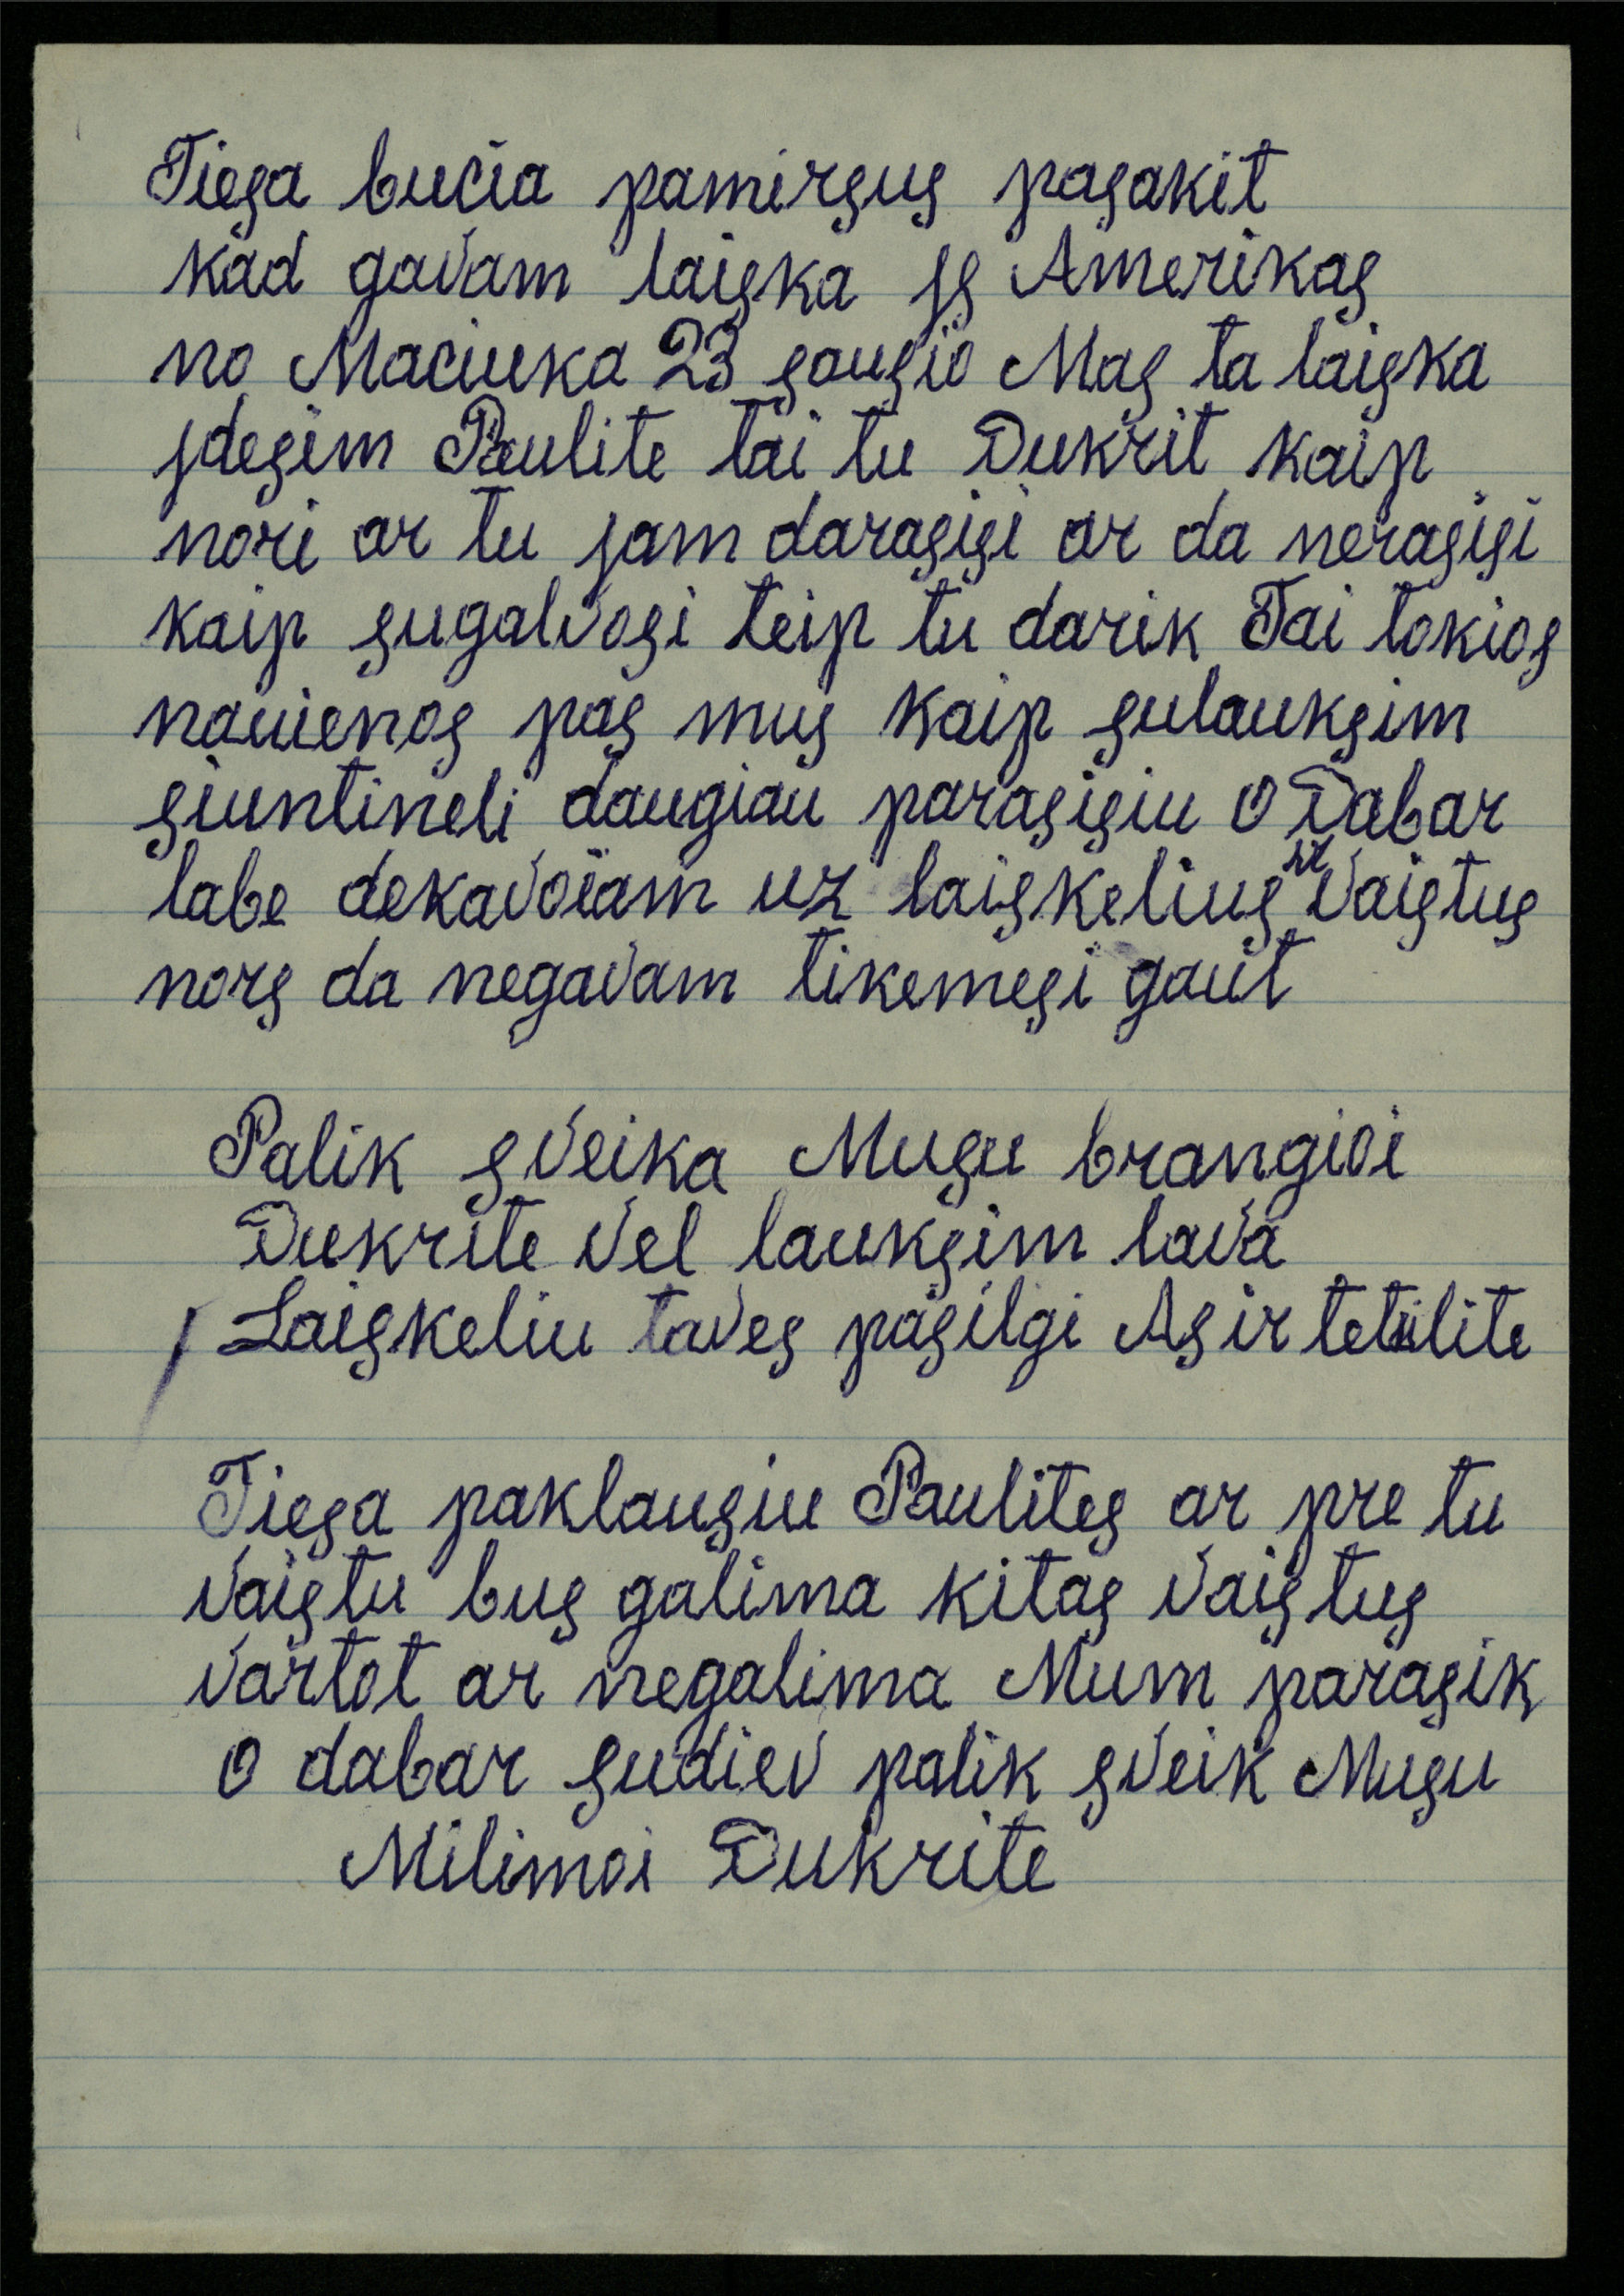 Tiesa bučia pamirsus pasakit
kad gavam laiska js Amerikas
no Maciuka 23 sausio Mas ta laiska
jdesim Paulite tai tu Dukrit kaip
nori ar tu jam darasisi ar da nerasisi
kaip sugalvosi teip tu darik Tai tokios
nauienos pas mus kaip sulauksim
siuntineli daugiau parasisiu O Dabar
labe dekavoiam uz laiskelius ir vaistus
nors da negavam tikemesi gaut
Palik sveika Musu brangioi
Dukrite vel lauksim tava
Laiskeliu taves pasilgi As ir tetulite
Tiesa paklausiu Paulites ar pre tu
vaistu bus galima kitas vaistus
vartot ar negalima Mum parasik
O dabar sudiev palik sveik Musu
Milimoi Dukrite